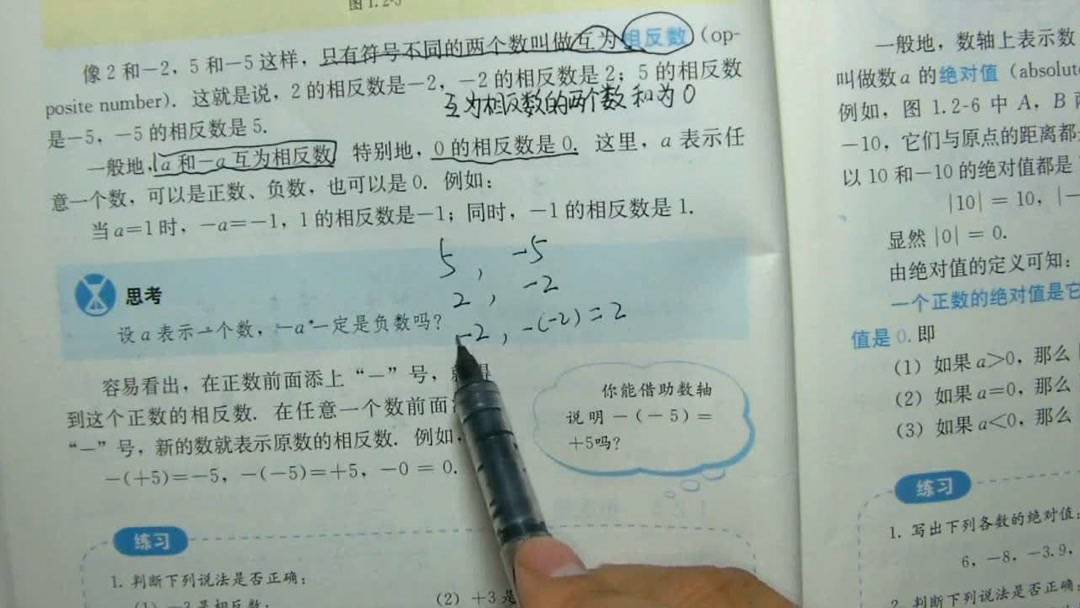 图1.2-5
像2和-2，5和-5这样，只有符号不同的两个数叫做互为相反数（op-
posite number）. 这就是说，2的相反数是-2，-2的相反数是2；5的相反数
互为相反数的两个数和为0
是-5，-5的相反数是5.
一般地，a和-a互为相反数. 特别地，0的相反数是0. 这里，a表示任
意一个数，可以是正数、负数，也可以是0. 例如：
当a=1时，-a=-1，1的相反数是-1；同时，-1的相反数是1.
5, -5
思考
2, -2
设a表示一个数，-a一定是负数吗？
-2, -(-2)=2
容易看出，在正数前面添上“-”号，
到这个正数的相反数. 在任意一个数前面
“-”号，新的数就表示原数的相反数. 例如，
-(+5)=-5，-(-5)=+5，-0=0.
你能借助数轴
说明-(-5)=
+5吗？
练习
1. 判断下列说法是否正确：
(1) -3是相反数；
(2) +3是
一般地，数轴上表示数
叫做数a的绝对值（absolute
例如，图1.2-6中A，B两
-10，它们与原点的距离都
以10和-10的绝对值都是
|10|=10，|-
显然|0|=0.
由绝对值的定义可知：
一个正数的绝对值是它
值是0. 即
(1) 如果a>0，那么
(2) 如果a=0，那么
(3) 如果a<0，那么
练习
1. 写出下列各数的绝对值：
6，-8，-3.9，
2. 判断下列说法是否正确